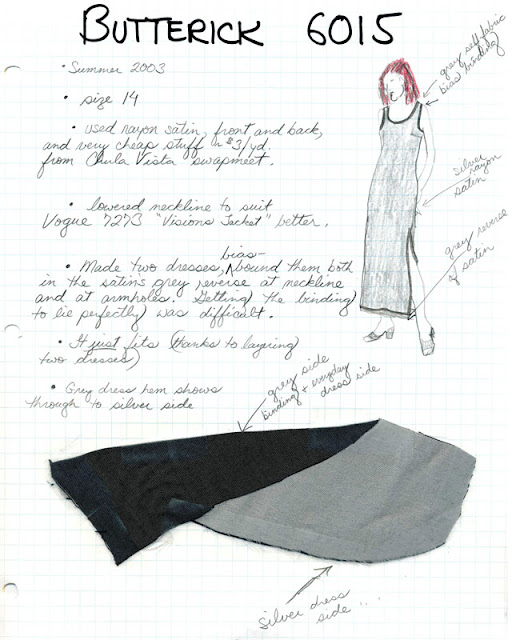 BUTTERICK 6015
• Summer 2003
• size 14
• used rayon satin, front and back,
and very cheap stuff ~ $3/yd.
from Chula Vista swapmeet.
• lowered neckline to suit
Vogue 7273 "Visions Jacket" better.
• Made two dresses, bias-bound them both
in the satin's grey reverse at neckline
and at armholes. Getting the binding
to lie perfectly was difficult.
• It just fits (thanks to layering
two dresses)
• Grey dress hem shows
through to silver side
grey self fabric
bias binding
silver
rayon
satin
grey reverse
of satin
grey side
binding + everyday
dress side
silver dress
side...